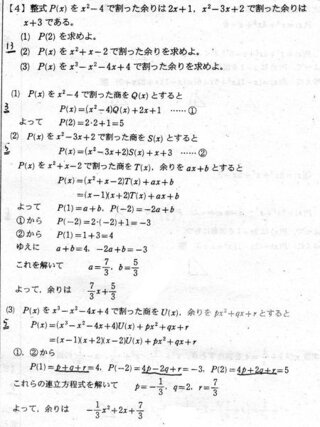 【4】整式 P(x) を x²−4 で割った余りは 2x+1, x²−3x+2 で割った余りは
x+3 である。
(1) P(2) を求めよ。
13
(2) P(x) を x²+x−2 で割った余りを求めよ。
(3) P(x) を x³−x²−4x+4 で割った余りを求めよ。
(1) P(x) を x²−4 で割った商を Q(x) とすると
3
P(x)=(x²−4)Q(x)+2x+1 ……①
よって P(2)=2·2+1=5
(2) P(x) を x²−3x+2 で割った商を S(x) とすると
5
P(x)=(x²−3x+2)S(x)+x+3 ……②
P(x) を x²+x−2 で割った商を T(x), 余りを ax+b とすると
P(x)=(x²+x−2)T(x)+ax+b
=(x−1)(x+2)T(x)+ax+b
よって P(1)=a+b, P(−2)=−2a+b
①から P(−2)=2·(−2)+1=−3
②から P(1)=1+3=4
ゆえに a+b=4, −2a+b=−3
これを解いて a=7/3, b=5/3
よって, 余りは 7/3x+5/3
(3) P(x) を x³−x²−4x+4 で割った商を U(x), 余りを px²+qx+r とすると
5
P(x)=(x³−x²−4x+4)U(x)+px²+qx+r
=(x−1)(x+2)(x−2)U(x)+px²+qx+r
①, ②から
P(1)=p+q+r=4, P(−2)=4p−2q+r=−3, P(2)=4p+2q+r=5
これらの連立方程式を解いて p=−1/3, q=2, r=7/3
よって, 余りは −1/3x²+2x+7/3